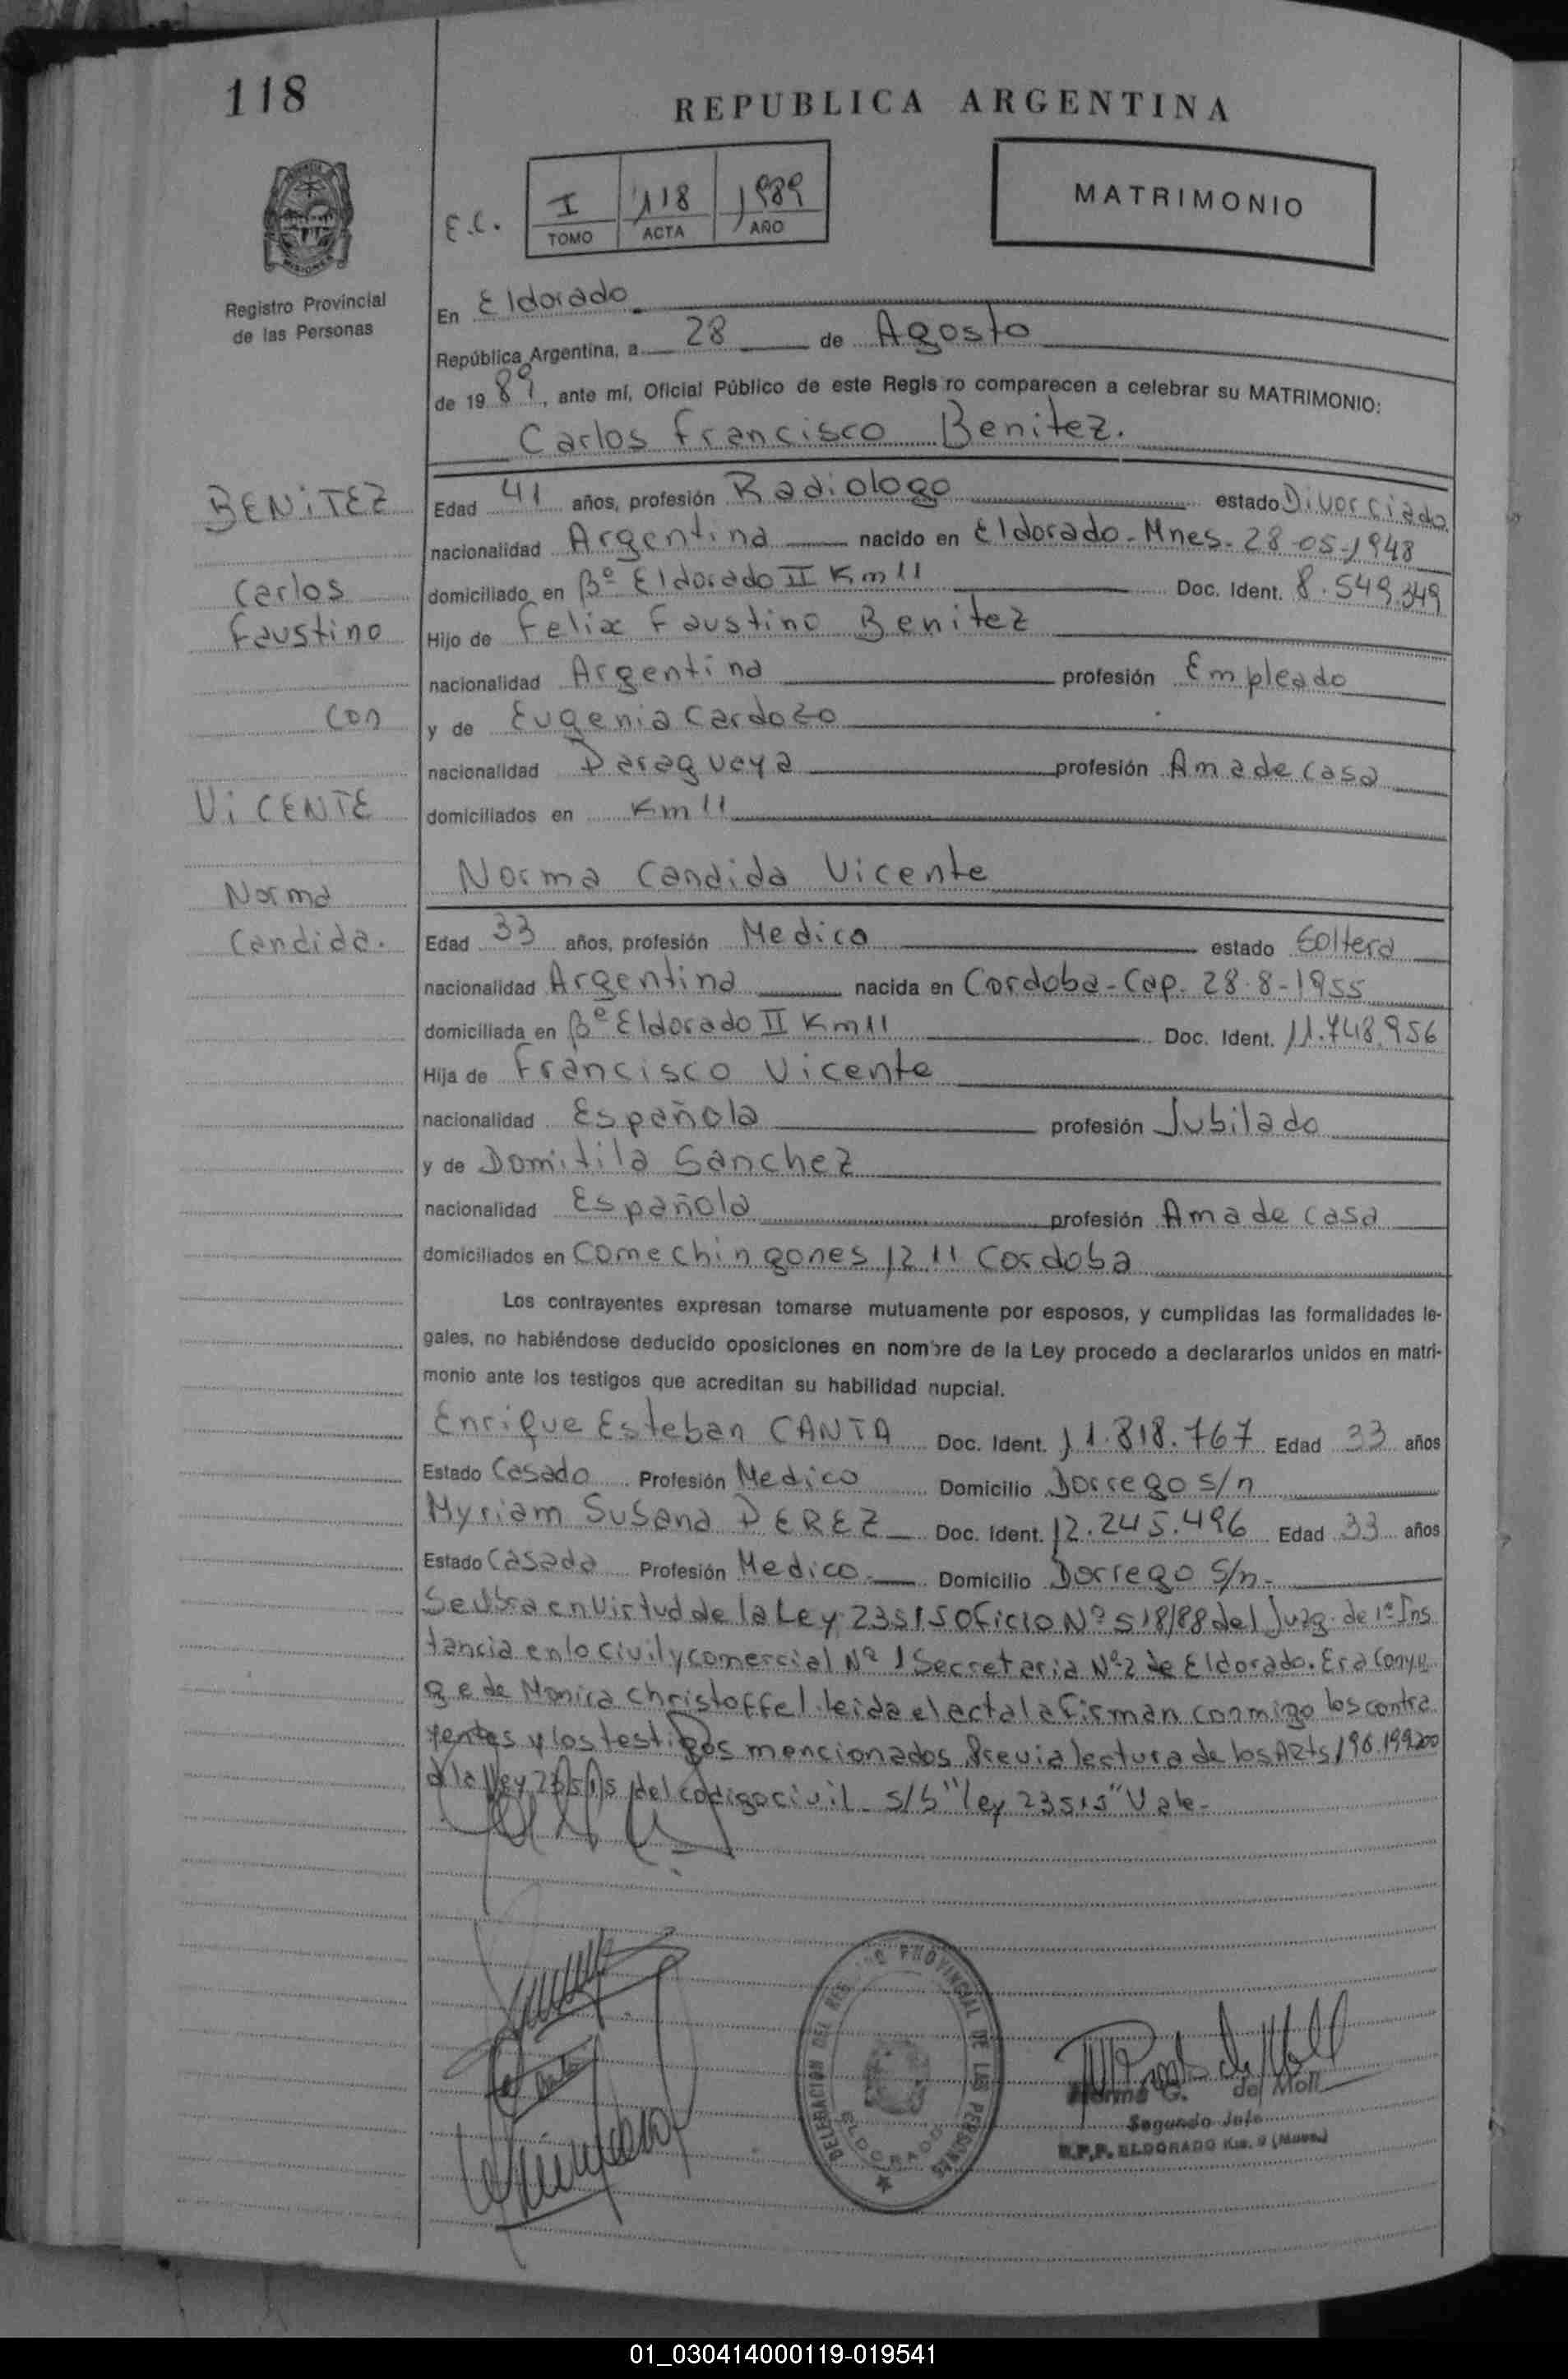 118
REPUBLICA ARGENTINA
MATRIMONIO
E.C.
I 118 1989
TOMO ACTA AÑO
MISIONES
Registro Provincial
de las Personas
En Eldorado
República Argentina, a 28 de Agosto
de 1989, ante mí, Oficial Público de este Regis ro comparecen a celebrar su MATRIMONIO:
Carlos Francisco Benitez.
BENITEZ
Carlos
Faustino
con
VICENTE
Norma
Candida.
Edad 41 años, profesión Radiologo estado Divorciado
nacionalidad Argentina nacido en Eldorado-Mnes-28-05-1948
domiciliado en Bº Eldorado II Km 11 Doc. Ident. 8.549.349
Hijo de Felix Faustino Benitez
nacionalidad Argentina profesión Empleado
y de Eugenia Cardozo
nacionalidad Paraguaya profesión Ama de casa
domiciliados en Km 11
Norma Candida Vicente
Edad 33 años, profesión Medica estado Soltera
nacionalidad Argentina nacida en Cordoba-Cap-28-8-1955
domiciliada en Bº Eldorado II Km 11 Doc. Ident. 11.748.956
Hija de Francisco Vicente
nacionalidad Española profesión Jubilado
y de Domitila Sanchez
nacionalidad Española profesión Ama de casa
domiciliados en Comechingones 1211 Cordoba
Los contrayentes expresan tomarse mutuamente por esposos, y cumplidas las formalidades le-
gales, no habiéndose deducido oposiciones en nombre de la Ley procedo a declararlos unidos en matri-
monio ante los testigos que acreditan su habilidad nupcial.
Enrique Esteban CANTA Doc. Ident. 11.818.767 Edad 33 años
Estado Casado Profesión Medico Domicilio Dorrego s/n
Myriam Susana PEREZ Doc. Ident. 12.245.496 Edad 33 años
Estado Casada Profesión Medico Domicilio Dorrego s/n-
en virtud de la Ley 23515 Oficio Nº 518/88 del Juzg. de 1º Ins
tancia en lo civil y comercial Nº 1 Secretaria Nº 2 de Eldorado. Era Conyu
ge de Monica Christoffel. leida el acta la firman conmigo los contra
yentes y los testigos mencionados Previa lectura de los Arts 198.199.200
d la ley 23515 del codigo civil s/b "ley 23515" Vale-
DELEGACION DEL REG PROVINCIAL DE LAS PERSONAS
ELDORADO
Norma G. de Moll
Segundo Jefe
R.P.P. ELDORADO Km. 9 (Mnes.)
01_030414000119-019541